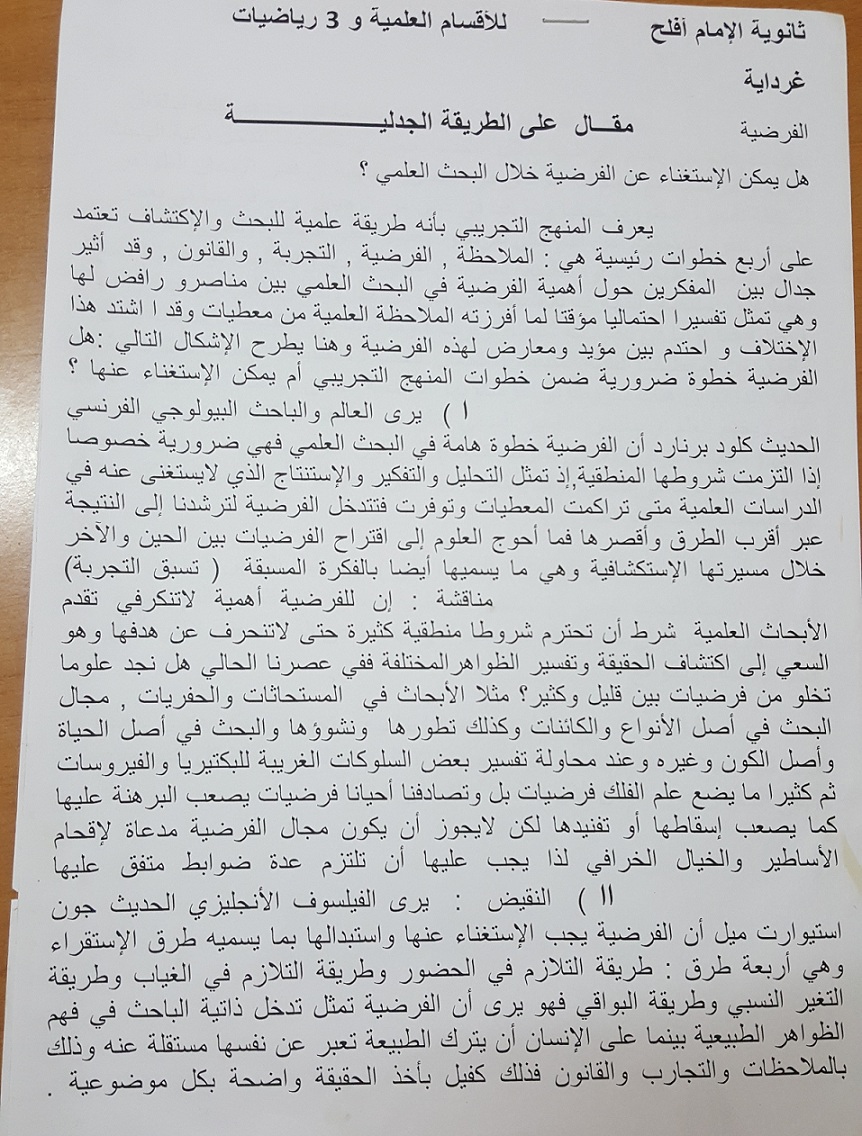 ثانوية الإمام أفلح — للأقسام العلمية و 3 رياضيات
غرداية
الفرضية مقـــال على الطريقة الجدليـــــــــــــــة
هل يمكن الإستغناء عن الفرضية خلال البحث العلمي ؟
يعرف المنهج التجريبي بأنه طريقة علمية للبحث والإكتشاف تعتمد
على أربع خطوات رئيسية هي : الملاحظة , الفرضية , التجربة , والقانون , وقد أثير
جدال بين المفكرين حول أهمية الفرضية في البحث العلمي بين مناصرو رافض لها
وهي تمثل تفسيرا احتماليا مؤقتا لما أفرزته الملاحظة العلمية من معطيات وقد ا اشتد هذا
الإختلاف و احتدم بين مؤيد ومعارض لهذه الفرضية وهنا يطرح الإشكال التالي :هل
الفرضية خطوة ضرورية ضمن خطوات المنهج التجريبي أم يمكن الإستغناء عنها ؟
I ) يرى العالم والباحث البيولوجي الفرنسي
الحديث كلود برنارد أن الفرضية خطوة هامة في البحث العلمي فهي ضرورية خصوصا
إذا التزمت شروطها المنطقية,إذ تمثل التحليل والتفكير والإستنتاج الذي لايستغنى عنه في
الدراسات العلمية متى تراكمت المعطيات وتوفرت فتتدخل الفرضية لترشدنا إلى النتيجة
عبر أقرب الطرق وأقصرها فما أحوج العلوم إلى اقتراح الفرضيات بين الحين والآخر
خلال مسيرتها الإستكشافية وهي ما يسميها أيضا بالفكرة المسبقة ( تسبق التجربة)
مناقشة : إن للفرضية أهمية لاتنكرفي تقدم
الأبحاث العلمية شرط أن تحترم شروطا منطقية كثيرة حتى لاتنحرف عن هدفها وهو
السعي إلى اكتشاف الحقيقة وتفسير الظواهرالمختلفة ففي عصرنا الحالي هل نجد علوما
تخلو من فرضيات بين قليل وكثير؟ مثلا الأبحاث في المستحاثات والحفريات , مجال
البحث في أصل الأنواع والكائنات وكذلك تطورها ونشوؤها والبحث في أصل الحياة
وأصل الكون وغيره وعند محاولة تفسير بعض السلوكات الغريبة للبكتيريا والفيروسات
ثم كثيرا ما يضع علم الفلك فرضيات بل وتصادفنا أحيانا فرضيات يصعب البرهنة عليها
كما يصعب إسقاطها أو تفنيدها لكن لايجوز أن يكون مجال الفرضية مدعاة لإقحام
الأساطير والخيال الخرافي لذا يجب عليها أن تلتزم عدة ضوابط متفق عليها
II ) النقيض : يرى الفيلسوف الأنجليزي الحديث جون
استيوارت ميل أن الفرضية يجب الإستغناء عنها واستبدالها بما يسميه طرق الإستقراء
وهي أربعة طرق : طريقة التلازم في الحضور وطريقة التلازم في الغياب وطريقة
التغير النسبي وطريقة البواقي فهو يرى أن الفرضية تمثل تدخل ذاتية الباحث في فهم
الظواهر الطبيعية بينما على الإنسان أن يترك الطبيعة تعبر عن نفسها مستقلة عنه وذلك
بالملاحظات والتجارب والقانون فذلك كفيل بأخذ الحقيقة واضحة بكل موضوعية .